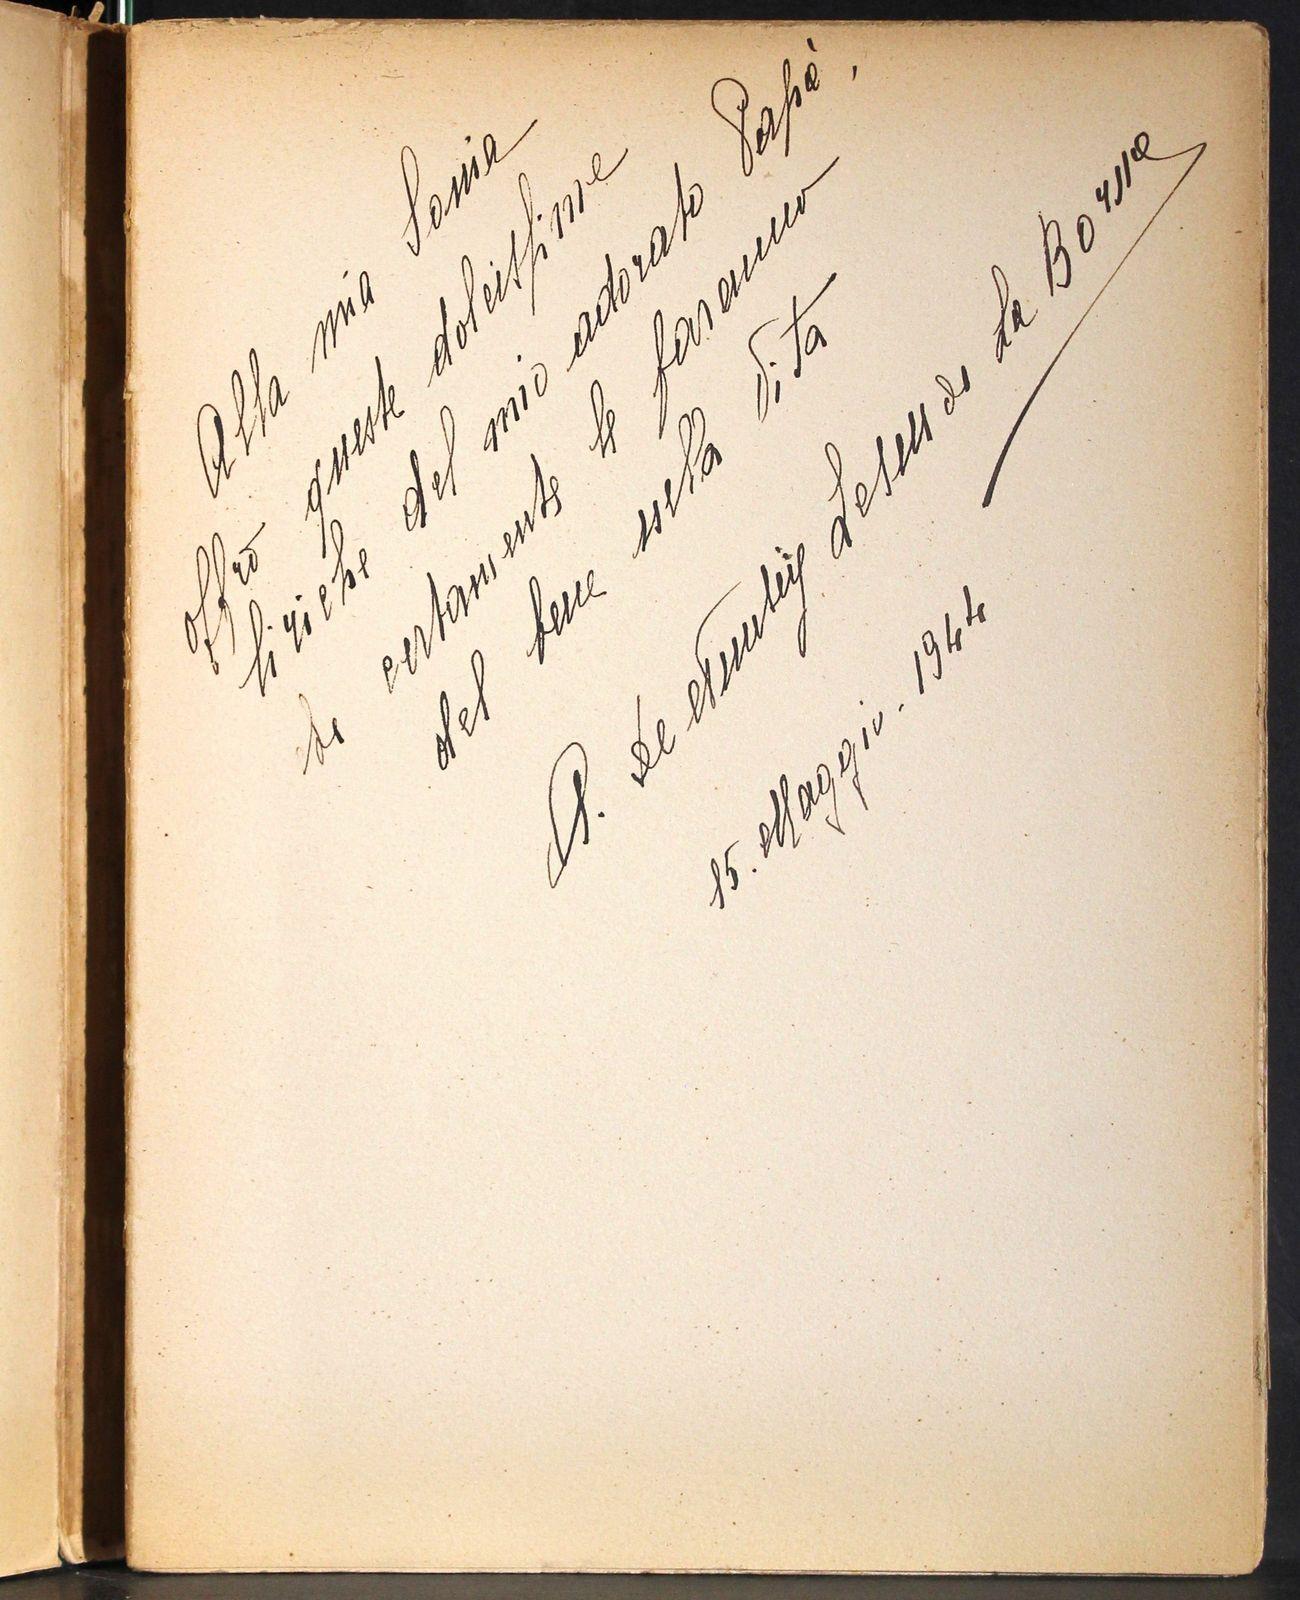 Alla mia Sonia
offro queste dolcissime
liriche del mio adorato Papà,
che certamente le faranno
del bene nella Vita
A. de
La Borne
15. Maggio - 1944